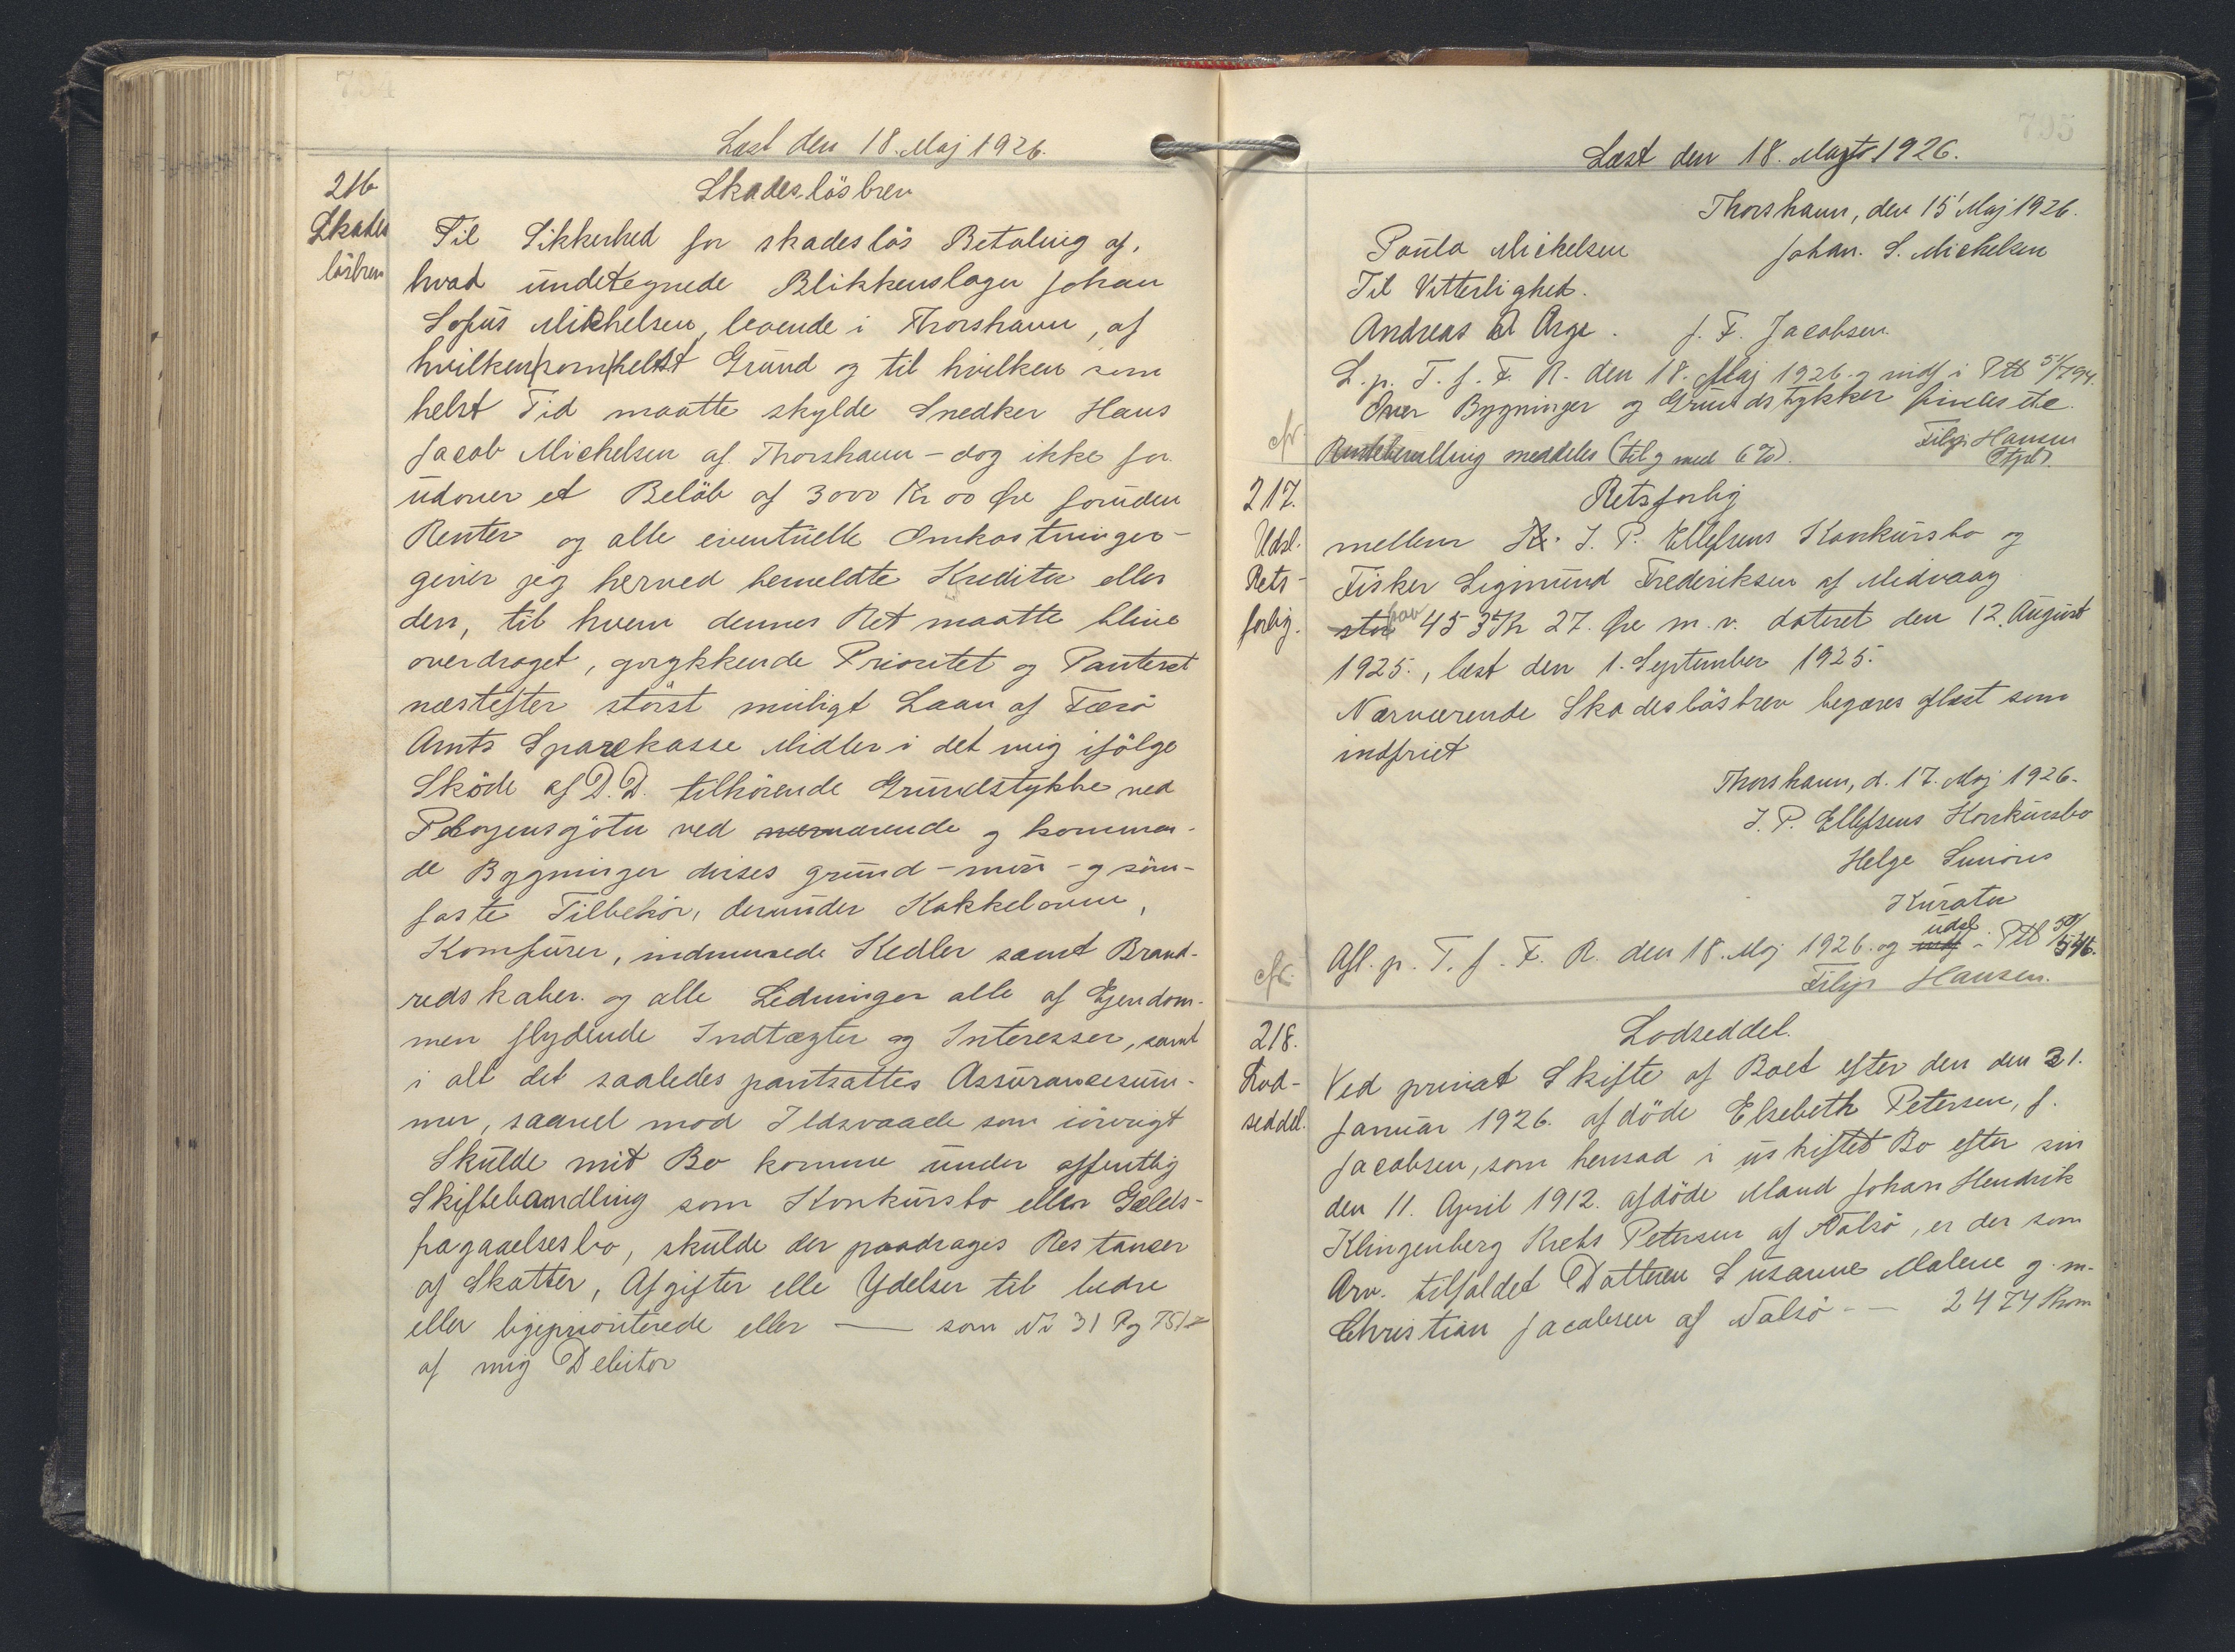 Læst den 18. Maj 1926.
216
Skades
lösbrev
Skadeslösbrev
Til Sikkerhed for skadeslös Betaling af,
hvad undetegnede Blikkenslager Johan
Sofus Mikhelsen, levende i Thorshavn, af
hvilkensomhelst Grund og til hvilken som
helst Tid maatte skylde Snedker Hans
Jacob Michelsen af Thorshavn - dog ikke for
udover et Belöb af 3000 Kr 00 Øre foruden
Renter og alle eventuelle Omkostninger -
giver jeg herved bemeldte Kreditor eller
den, til hvem dennes Ret maatte blive
overdraget, oprykkende Prioritet og Panteret
næstefter störst muligt Laan af Færö
Amts Sparekasse Midler i det mig ifölge
Sköde af D.D. tilhörende Grundstykke ved
ved nærværende og kommen-
de Bygninger disses grund- mur- og söm-
faste Tilbehör, derunder Kakkelovne,
Komfurer, indmurede Kedler samt Brand-
redskaber og alle Ledninger alle af Ejendom-
men flydende Indtægter og Interesser, samt
i alt det saaledes pantsattes Assurancesum-
mer, saavel mod Ildsvaade som iövrigt
Skulde mit Bo komme under offentlig
Skiftebehandling som Konkursbo eller Gælds-
fragaaelsesbo, skulde der paadrages Restancer
af Skatter, Afgifter elle Ydelser til bedre
eller ligeprioriterede eller — som Nr 31 Pg 751
af mig Debitor
Læst den 18. Majts 1926.
Thorshavn, den 15' Maj 1926.
Paula Michelsen Johan. S. Michelsen
Til Vitterlighed.
Andreas á Arge. J. F. Jacobsen
L. p. T. f. F. R. den 18. Maj 1926 og indf i Ptb 51/794.
Over Bygninger og Grundstykker findes ete.
cfr. meddeles (til og med 6%). Filip Hansen
217.
Udsl.
Rets-
forlig.
Retsforlig
mellem Kr. J. P. Ellefsens Konkursbo og
Fisker Sigmund Frederiksen af Midvaag
stor 453 Kr 27. Øre m. v. dateret den 12. August
1925., læst den 1. September 1925.
Nærværende Skadeslösbrev begæres aflæst som
indfriet
Thorshavn, d. 17. Maj 1926.
J. P. Ellefsens Konkursbo
Helge
Kurator
udsl
cfr. Afl. p. T. f. F. R. den 18. Maj 1926. og indf i Ptb 50/546.
Filip Hansen.
218.
Lod-
seddel.
Lodseddel.
Ved privat Skifte af Boet efter den den 31.
Januar 1926. afdöde Elsebeth Petersen, f.
Jacobsen, som hensad i uskiftet Bo efter sin
den 11. April 1912. afdöde Mand Johan Hendrik
Klingenberg Krebs Petersen af Nolsö, er der som
Arv. tilfaldet Datteren Susanne Malene g. m.
Christian Jacobsen af Nolsö — 2474 Kron